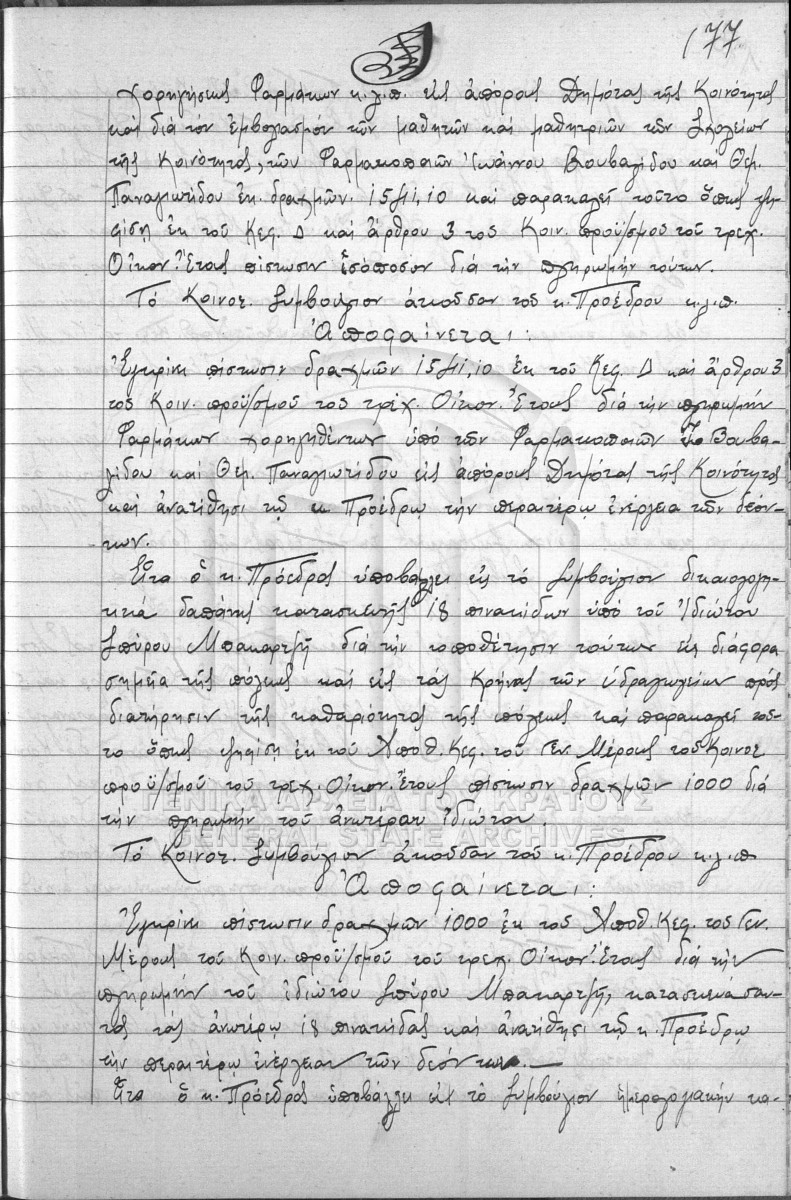 177
χορηγήσεως Φαρμάκων κ.λ.π. εἰς ἀπόρους Δημότας τῆς Κοινότητος
καὶ διὰ τὸν ἐμβολιασμὸν τῶν μαθητῶν καὶ μαθητριῶν τῶν Σχολείων
τῆς Κοινότητος, τῶν Φαρμακοποιῶν Ἰωάννου Βουβαλίδου καὶ Θεμ.
Παναγιωτίδου ἐκ δραχμῶν 1541,10 καὶ παρακαλεῖ τοῦτο ὅπως ψη-
φίσῃ ἐκ τοῦ Κεφ. Δ καὶ ἄρθρου 3 τοῦ Κοιν. προϋ/σμοῦ τοῦ τρεχ.
Οἰκον. Ἔτους πίστωσιν ἰσόποσον διὰ τὴν πληρωμὴν τούτων.
Τό Κοινοτ. Συμβούλιον ἀκοῦσαν τοῦ κ. Προέδρου κ.λ.π.
Ἀποφαίνεται:
Ἐγκρίνει πίστωσιν δραχμῶν 1541,10 ἐκ τοῦ Κεφ. Δ καὶ ἄρθρου 3
τοῦ Κοιν. προϋ/σμοῦ τοῦ τρέχ. Οἰκον. Ἔτους διὰ τὴν πληρωμὴν
Φαρμάκων χορηγηθέντων ὑπὸ τῶν Φαρμακοποιῶν Ἰω Βουβα-
λίδου καὶ Θεμ. Παναγιωτίδου εἰς ἀπόρους Δημότας τῆς Κοινότητος
καὶ ἀνατίθησι τῷ κ. Προέδρῳ τὴν περαιτέρω ἐνέργεια τῶν δεόν-
των.
Εἶτα ὁ κ. Πρόεδρος ὑποβάλλει εἰς τὸ Συμβούλιον δικαιολογη-
τικά δαπάνης κατασκευῆς 18 πινακίδων ὑπὸ τοῦ Ἰδιώτου
Σπύρου Μπακαρτζῆ διὰ τὴν τοποθέτησιν τούτων εἰς διάφορα
σημεῖα τῆς πόλεως καὶ εἰς τὰς κρήνας τῶν ὑδραγωγείων πρὸς
διατήρησιν τῆς καθαριότητος τῆς πόλεως καὶ παρακαλεῖ τοῦ-
το ὅπως ψηφίσῃ ἐκ τοῦ Ἀποθ. Κεφ. τοῦ Γεν. Μέρους τοῦ Κοινοτ
προϋ/σμοῦ τοῦ τρεχ. Οἰκον. Ἔτους πίστωσιν δραχμῶν 1000 διὰ
τὴν πληρωμὴν τοῦ ἀνωτέρου ἰδιώτου.
Τό Κοινοτ. Συμβούλιον ἀκοῦσαν τοῦ κ. Προέδρου κ.λ.π
Ἀποφαίνεται:
Ἐγκρίνει πίστωσιν δραχμῶν 1000 ἐκ τοῦ Ἀποθ. Κεφ. τοῦ Γεν.
Μέρους τοῦ Κοιν. προϋ/σμοῦ τοῦ τρεχ. Οἰκον. Ἔτους διὰ τὴν
πληρωμὴν τοῦ ἰδιώτου Σπύρου Μπακαρτζῆ, κατασκευάσαν-
τος τὰς ἀνωτέρω 18 πινακίδας καὶ ἀνατίθησι τῷ κ. Προέδρῳ
τὴν περαιτέρω ἐνέργειαν τῶν δεόντων.—
Εἶτα ὁ κ. Πρόεδρος ὑποβάλλει εἰς τὸ Συμβούλιον ἡμερολογιακὴν κα-
ΓΕΝΙΚΑ ΑΡΧΕΙΑ ΤΟΥ ΚΡΑΤΟΥΣ
GENERAL STATE ARCHIVES